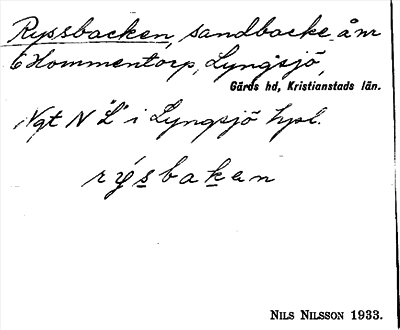 Ryssbacken, sandbacke å nr
6 Hommentorp, Lyngsjö,
Gärds hd, Kristianstads län.
Ngt N "L" i Lyngsjö hpl.
rýsbakan
NILS NILSSON 1933.